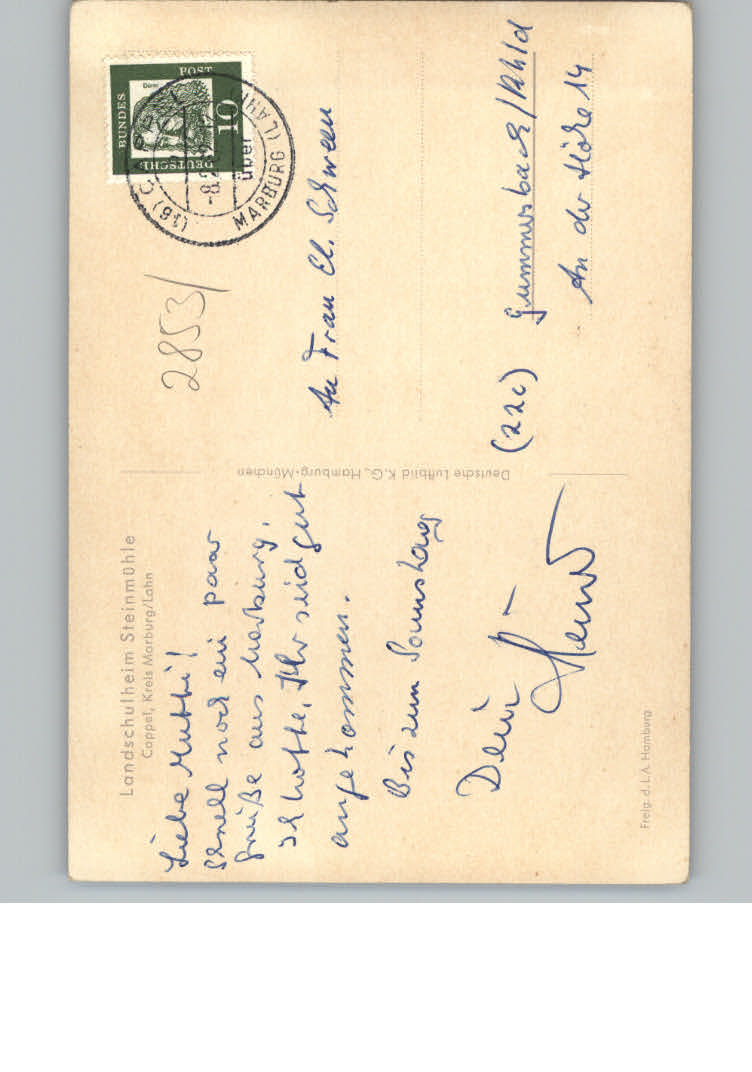 Landschulheim Steinmühle
Cappel, Kreis Marburg/Lahn
Liebe Mutti!
Schnell noch ein paar
Grüße aus Marburg.
Ich hoffe, Ihr seid gut
angekommen.
Bis zum Sonnstag
Dein
Freig. d. L.A. Hamburg
Deutsche Luftbild K.G., Hamburg-München
DEUTSCHE
BUNDES
POST
Dürer
10
(16) CAPPEL
-8.2
über
MARBURG (LAHN)
2853/
An Frau El. Schween
(22c) Gummersbach/Rhld
An der Höhe 14